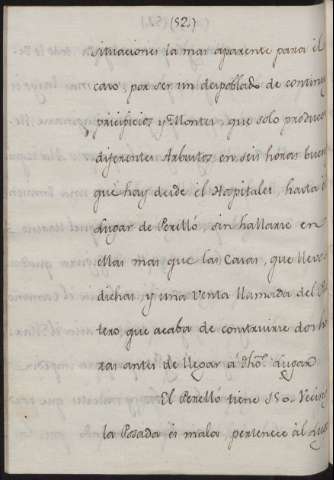 (52.)
situaciones la mas aparente para el
caso, por ser un despoblado de contin
precipicios, y Montes, que solo produce
diferentes Arbustos en seis horas buen
que hay desde el Hospitalet, hasta
Lugar de Perelló, sin hallarse en
ellas mas que las Casas, que llevo
dichas, y una Venta llamada del
tero que acaba de construirse dos ho
ras antes de llegar á dho. Lugar
El Perelló tiene 150. Vecin
la Posada és mala, pertenece ál